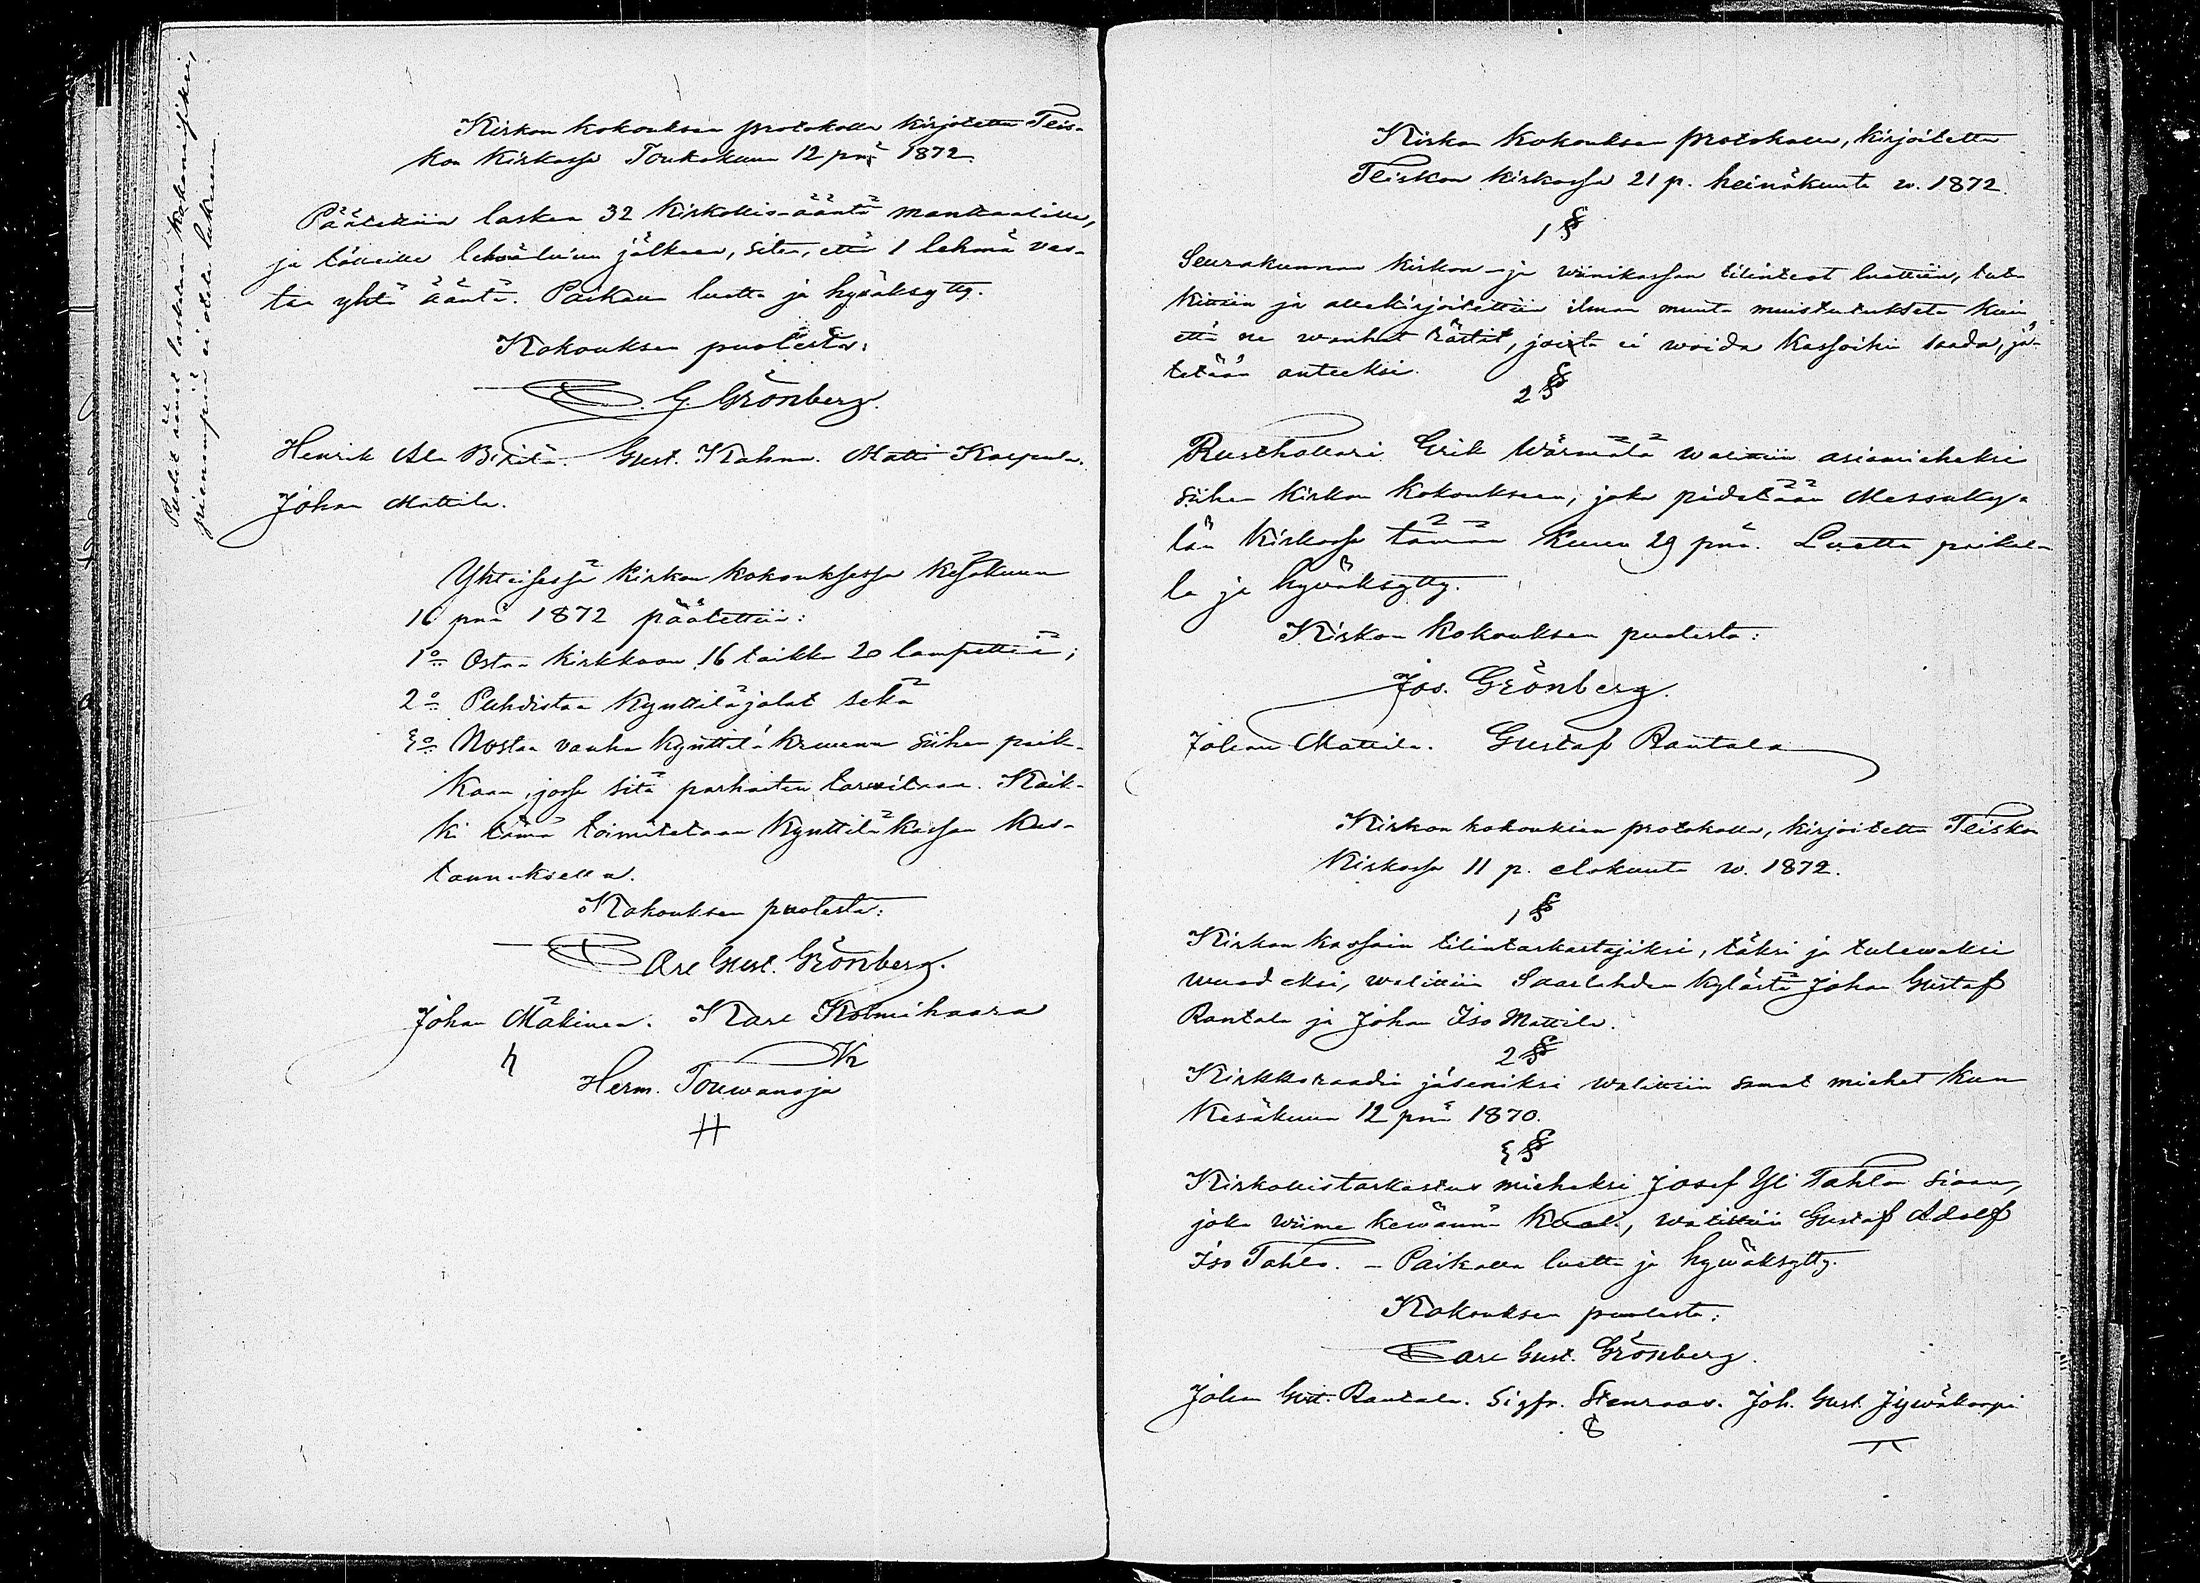 Puolet äänet lasketaan kokonaisiksi,
pienempiä ei oteta lukuun.
Kirkon kokouksen protokolla kirjoitettu Teis-
kon kirkossa Toukokuun 12 pnä 1872.
Päätettiin laskea 32 kirkollis-ääntä manttaalille,
ja tölleille lehmäluvun jälkeen, siten, että 1 lehmä vas-
taa yhtä ääntä. Paikalla luettu ja hyväksytty.
Kokouksen puolesta:
C. G. Grönberg.
Henrik Ala Pirilä. Gust. Kahna. Matti Karpula.
Johan Mattila.
Yhteisessä kirkon kokouksessa Kesäkuun
16 pnä 1872 päätettiin:
1:o Ostaa kirkkoon 16 taikka 20 lampettiä;
2:o Puhdistaa kynttiläjalat sekä
3:o Nostaa vanha kynttilä kruunu siihen paik-
kaan, jossa sitä parhaiten tarvitaan. Kaik-
ki tämä toimitetaan kynttiläkassan kus-
tannuksella.
Kokouksen puolesta:
Carl Gust. Grönberg.
Johan Mäkinen. Karl Kolmihaara
Herm. Touwanoja
Kirkon kokouksen protokolla, kirjoitettu
Teiskon kirkossa 21 p. heinäkuuta w. 1872.
1 §
Seurakunnan kirkon- ja wiinikassan tilinteot luettiin, tut-
kittiin ja allekirjoitettiin ilman muuta muistutuksta kuin
että ne wanhat rästit, joista ei woida kassoihin saada, jä-
tetään anteeksi.
2 §
Rusthollari Erik Wärmälä walittiin asiamieheksi
siihen kirkon kokoukseen, joka pidetään Messuky-
län kirkossa tämän kuun 29 pnä. Luettu paikal-
la ja hyväksytty.
Kirkon kokouksen puolesta:
Jos. Grönberg.
Johan Mattila. Gustaf Rantala
Kirkon kokouksen protokolla, kirjoitettu Teiskon
kirkossa 11 p. elokuuta w. 1872.
1 §
Kirkon kassain tilintarkastajiksi, täksi ja tulewaksi
wuodeksi, walittiin Saarlahden kylästä Johan Gustaf
Rantala ja Johan Iso Mattila.
2 §
Kirkkoraadin jäseniksi walittiin samat miehet kun
Kesäkuun 12 pnä 1870.
3 §
Kirkollistarkastus mieheksi Josef Yli Tahlon siaan,
joka wiime kewännä kuoli, walittiin Gustaf Adolf
Iso Tahlo. – Paikalla luettu ja hywäksytty.
Kokouksen puolesta:
Carl Gust. Grönberg.
Johan Gust. Rantala. Sigfr. Stenroos. Joh. Gust. Jywäkorpi